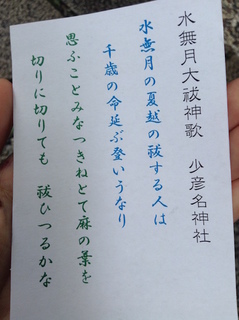 水無月大祓神歌　少彦名神社
水無月の夏越の祓する人は
千歳の命延ぶ登いうなり
思ふことみなつきねとて麻の葉を
切りに切りても　祓ひつるかな